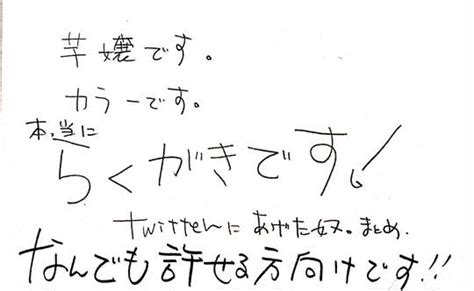 芋嬢です。
カラーです。
本当に
らくがきです!
twitterにあげた奴。まとめ.
なんでも許せる方向けです!!